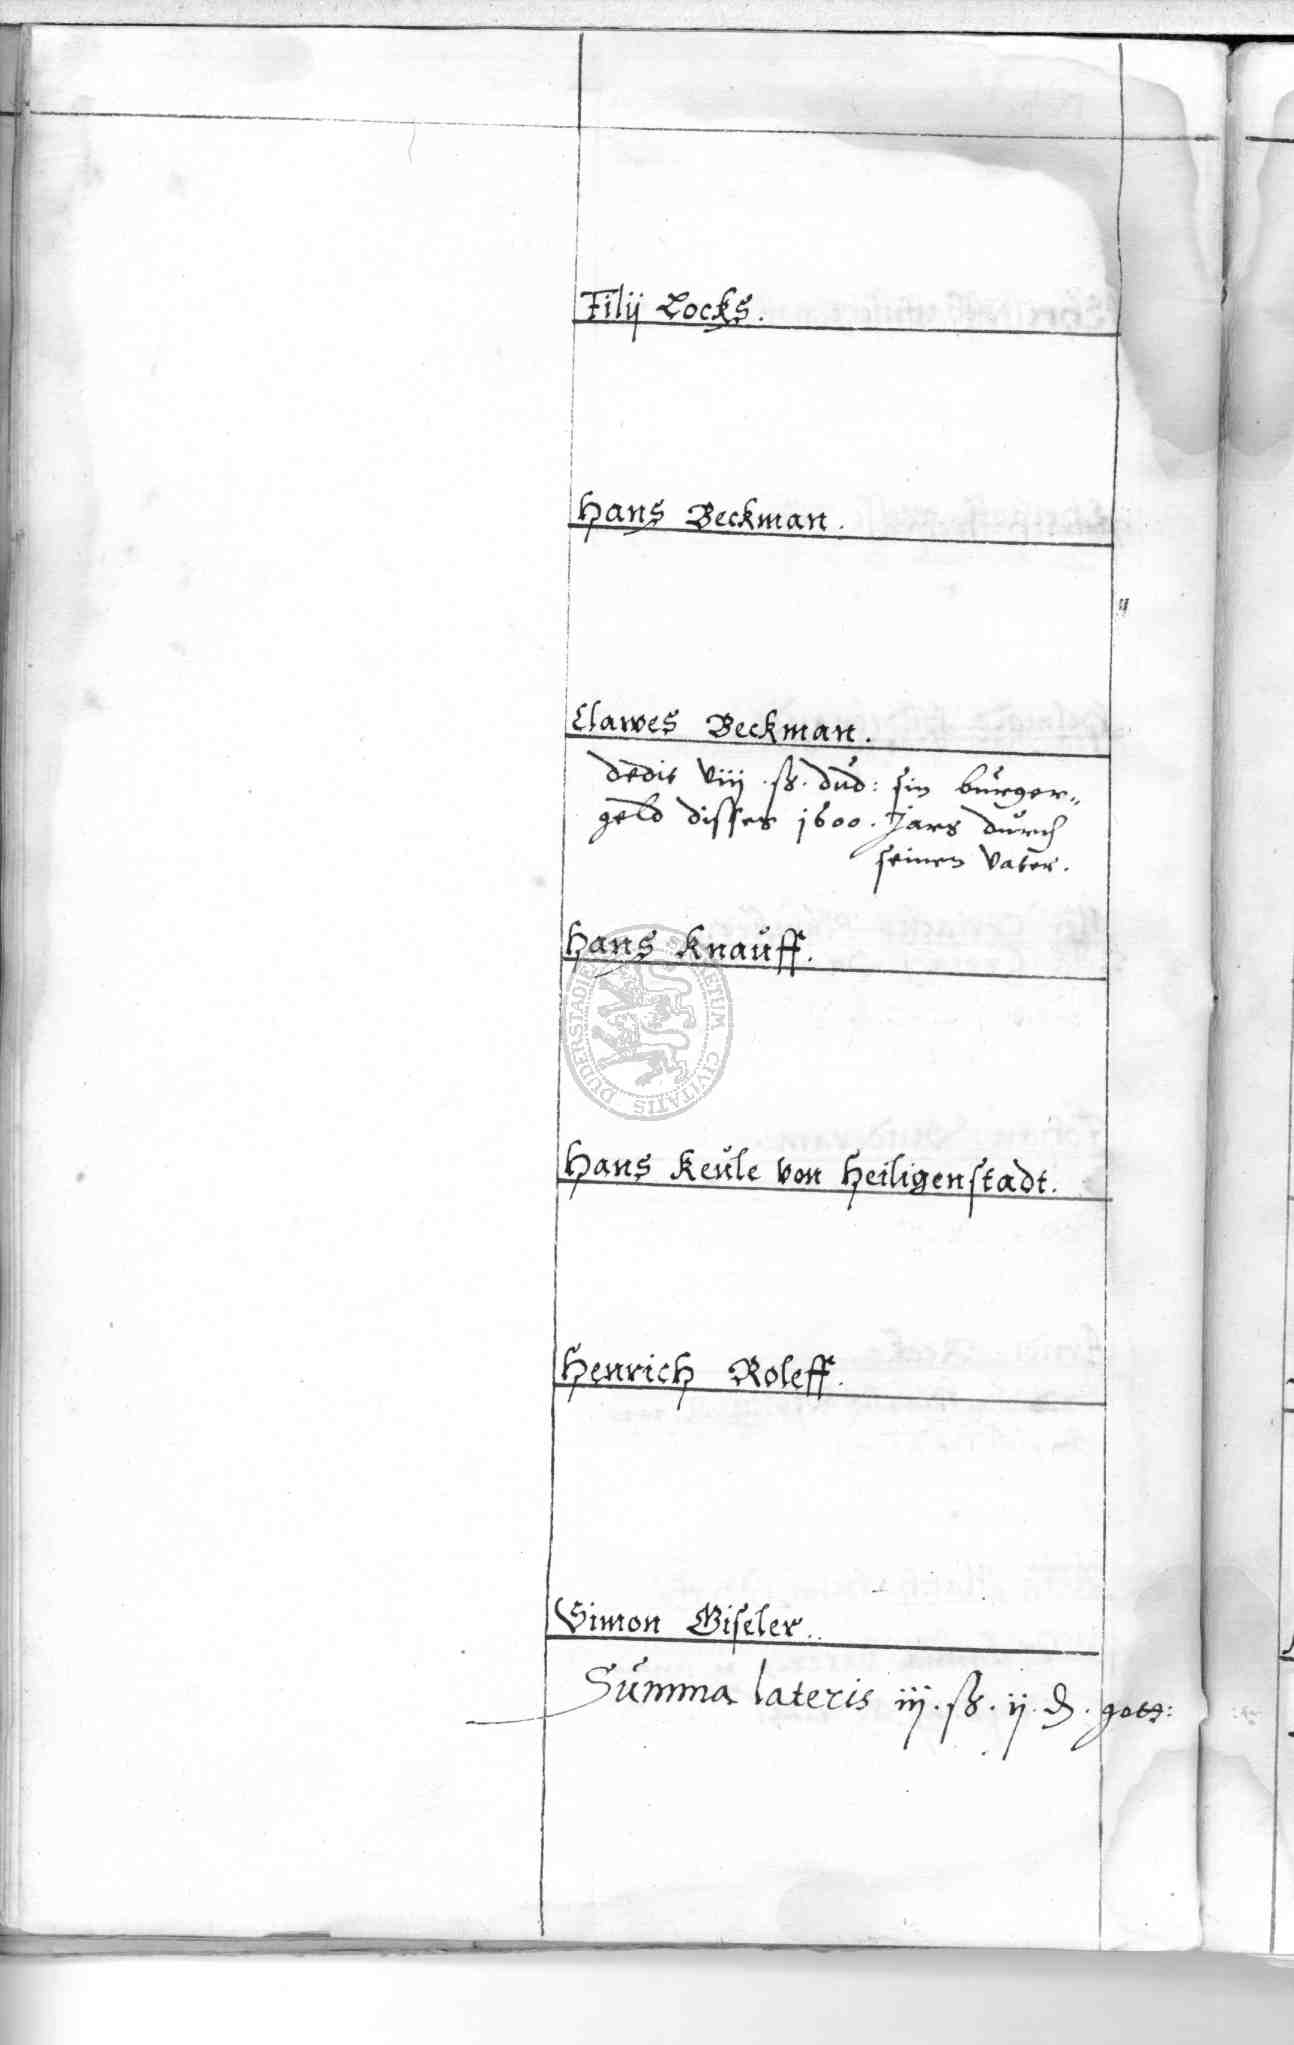 Filij Locks.
Hans Beckman.
Clawes Beckman.
dedit viij . ß . dud: sin bürger„
geld disses 1600 . Jars durch
seinen Vater.
Hans Knauff.
Hans Keule von Heiligenstadt.
Henrich Roleff.
Simon Giseler.
Summa lateris iij . ß . ij . d . gott: